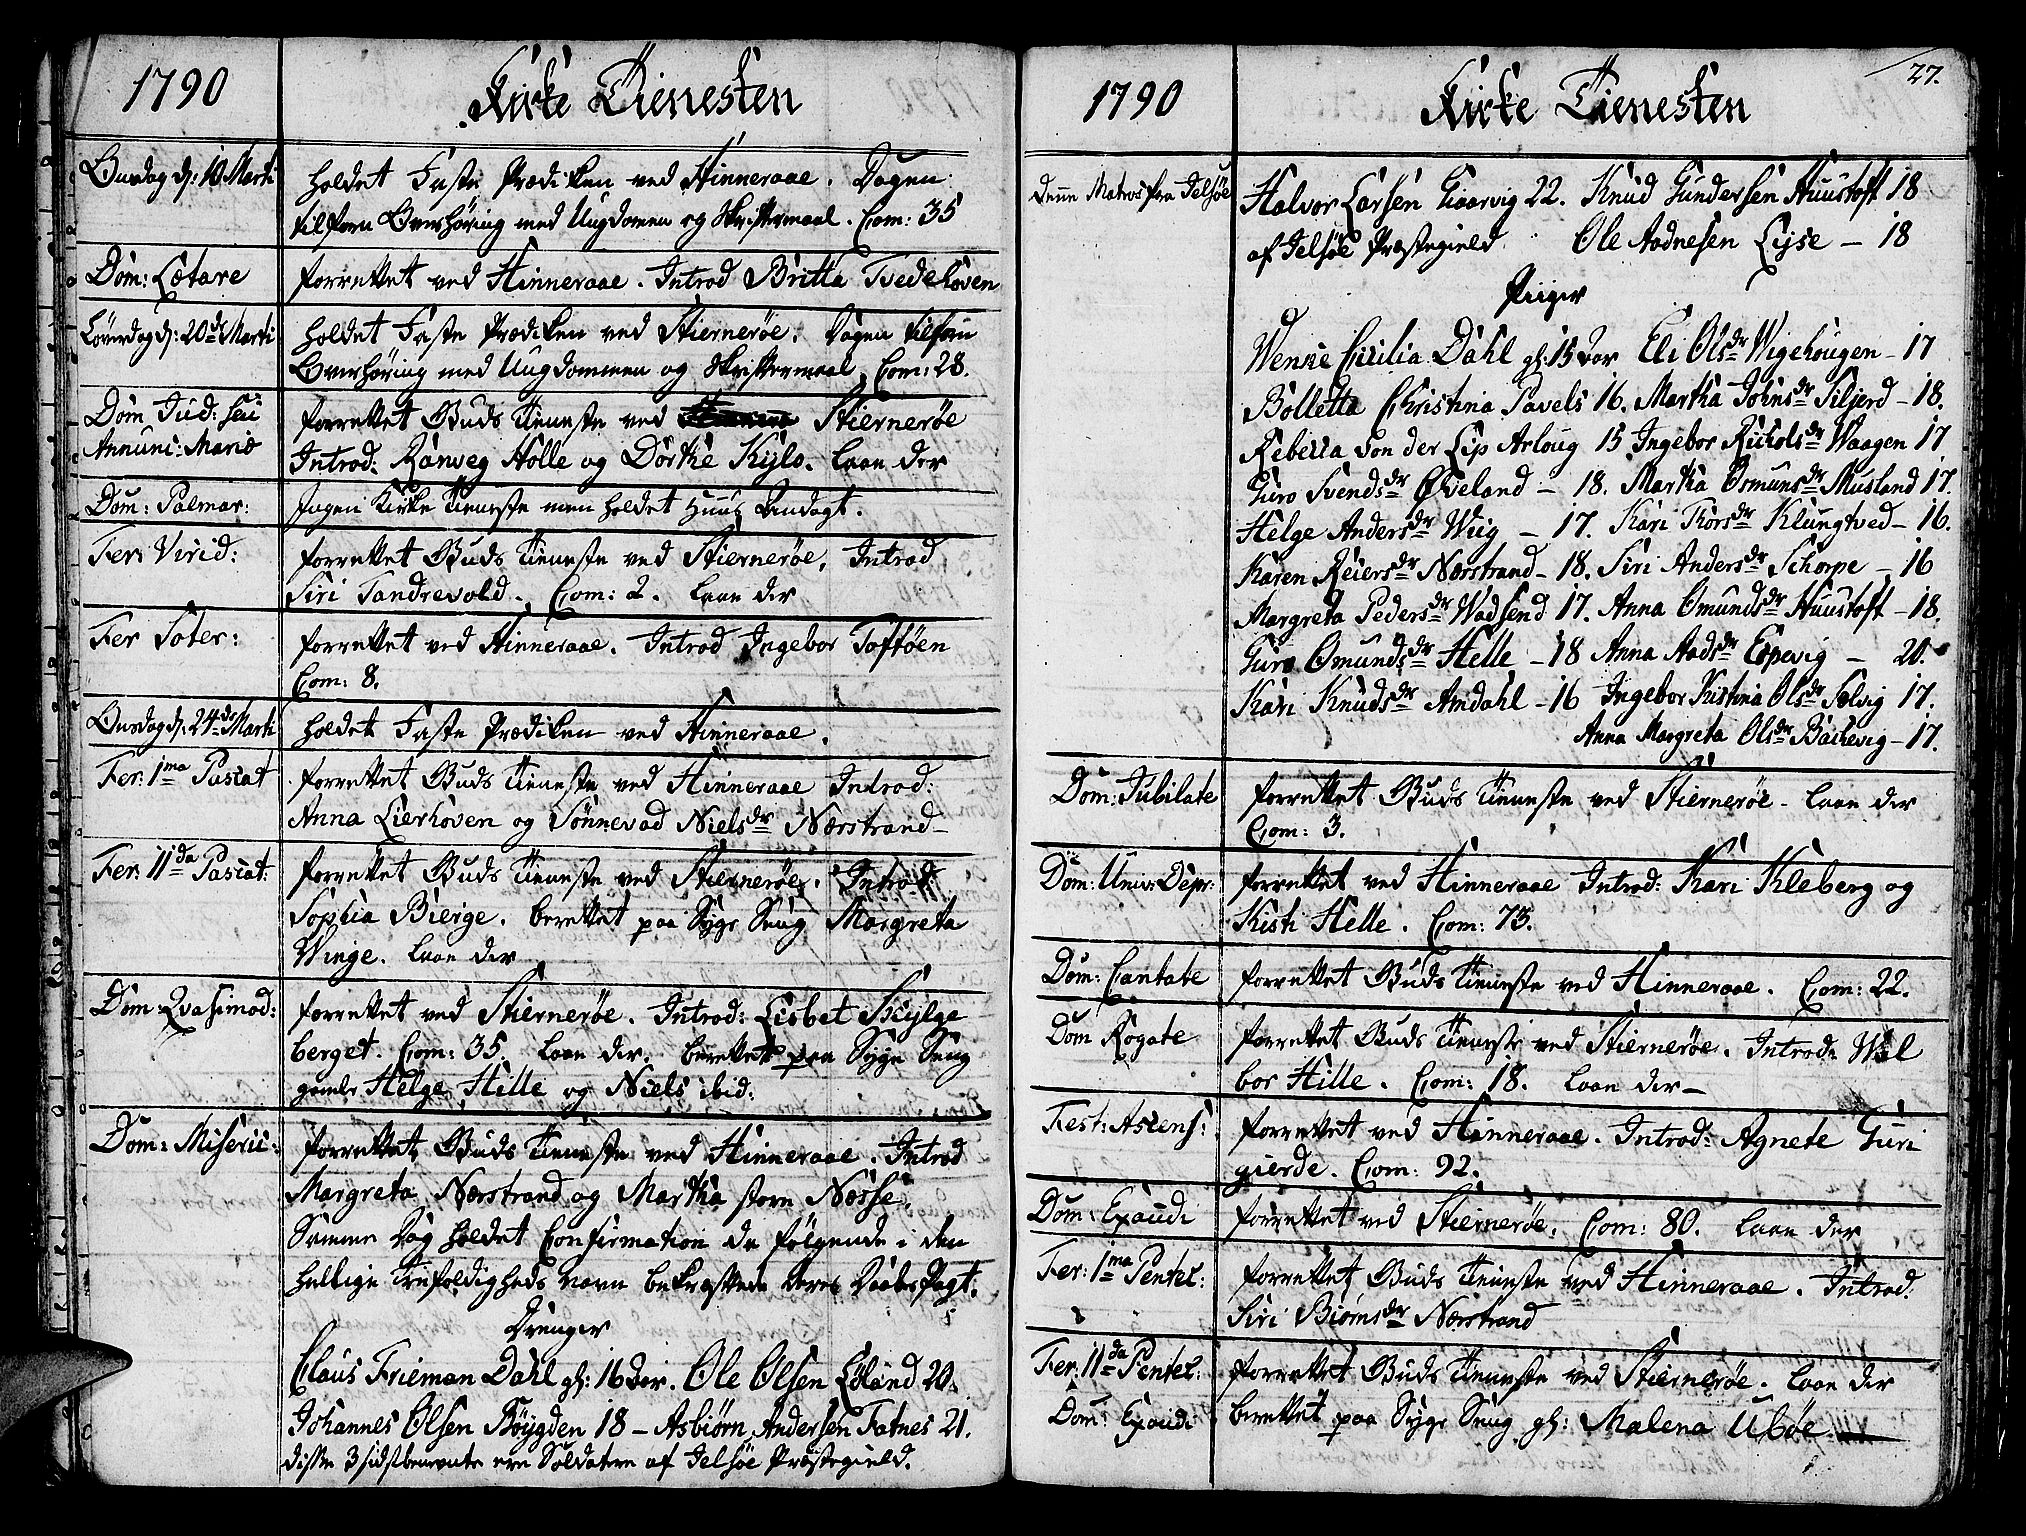 1790
Kirke Tienesten
Onsdag d: 10 Marti
holdet Faste Prædiken ved Hinneraae. Dagen
tilforn Overhøring med Ungdomen og Skriftermaal. Com: 35
Dom: Lætare
forrettet ved Hinneraae. Introd Britta Tvedehoven
Løverdag d: 20de Marti
holdet Faste Prædiken ved Stiernerøe. Dagen tilforn
Overhøring med Ungdommen og Skriftermaal. Com: 28.
Dom Jud: seu
Annunc: Mariæ
forrettet Guds Tieneste ved Stiernerøe
Introd: Ranveg Holle og Dorthe Kylo. laae der
Dom: Palmar:
Ingen Kirke Tieneste men holdet Huus Andagt.
Fer: Virid:
forrettet Guds Tieneste ved Stiernerøe. Introd
Siri Tandrevold. Com: 2. laae der
Fer Soter:
forrettet ved Hinneraae. Introd Ingebor Toftøen
Com: 8.
Onsdag d: 24de Marti
holdet Faste Prædiken ved Hinneraae.
Fer: 1ma Pascat
forrettet Guds Tieneste ved Hinneraae Introd:
Anna Lierhoven og Sønnevad Nielsdr Nærstrand
Fer: 11da Pascat:
forrettet Guds Tieneste ved Stiernerøe. Introd
Sophia Bierge. berettet paa Syge Seng Margreta
Winge. laae der
Dom Qvasimod:
forrettet ved Stiernerøe. Introd: Lisbet Skylge
berget. Com: 35. laae der. berettet paa Syge Seng
gamle Helge Hille og Niels ibid:
Dom: Miseric:
forrettet Guds Tieneste ved Hinneraae. Introd
Margreta Nærstrand og Martha store Næsse.
Samme Dag holdet Confirmation da følgende i den
hellige Trefoldigheds navn bekræftede deres Daabes Pagt.
Drenger
Claus Frieman Dahl gl: 16 Aar. Ole Olsen Eiland 20.
Johannes Olsen Bøygden 18 - Asbiørn Andersen Fatnes 21.
disse 3 sidstbenevnte ere Soldater af Jelsøe Præstegield.
27.
1790
Kirke Tienesten
Denne Matros fra Jelsøe
Halvor Larsen Gaarvig 22. Knud Gundersen Huustoft 18
af Jelsøe Præstegield Ole Aadnesen Eyse - 18
Piiger
Wencie Cicilia Dahl gl: 15 Aar Eli Olsdr Wigehougen - 17
Bolletta Christina Pavels 16. Martha Johnsdr Siljerd - 18.
Rebecca von der Lip Arloug 15 Ingebor Richolsdr Waagen 17
Guro Svendsdr Øveland - 18. Martha Osmunsdr Musland 17.
Helge Andersdr Wiig - 17. Kari Thorsdr Klungtved - 16.
Karen Reiersdr Nærstrand - 18. Siri Andersdr Schorpe - 16
Margreta Pedersdr Wadsend 17. Anna Omundsdr Huustoft - 18.
Guro Omundsdr Helle - 18 Anna Aadsdr Espevig - 20.
Kari Knudsdr Amdahl - 16 Ingebor Kistina Olsdr Solvig 17.
Anna Margreta Olsdr Backevig - 17.
Dom: Jubilate
forrettet Guds Tieneste ved Stiernerøe - laae der
Com: 3.
Dom: Univ: Depr:
forrettet ved Hinneraae Introd: Kari Kleberg og
Kisti Helle. Com: 73.
Dom: Cantate
forrettet Guds Tieneste ved Hinneraae. Com: 22.
Dom Rogate
forrettet Guds Tieneste ved Stiernerøe. Introd: Wal
bor Hille. Com: 18. laae der -
Fest: Ascens:
forrettet ved Hinneraae. Introd: Agnete Guri
gierde. Com: 92.
Dom: Exaudi
forrettet ved Stiernerøe. Com: 80. laae der
Fer: 1ma Pentec:
forrettet Guds Tieneste ved Hinneraae. Introd:
Siri Biørnsdr Nærstrand
Fer: 11da Pentec:
forrettet Guds Tieneste ved Stiernerøe. laae der
Dom: Exaudi
berettet paa Syge Seng gl: Malena Ubøe